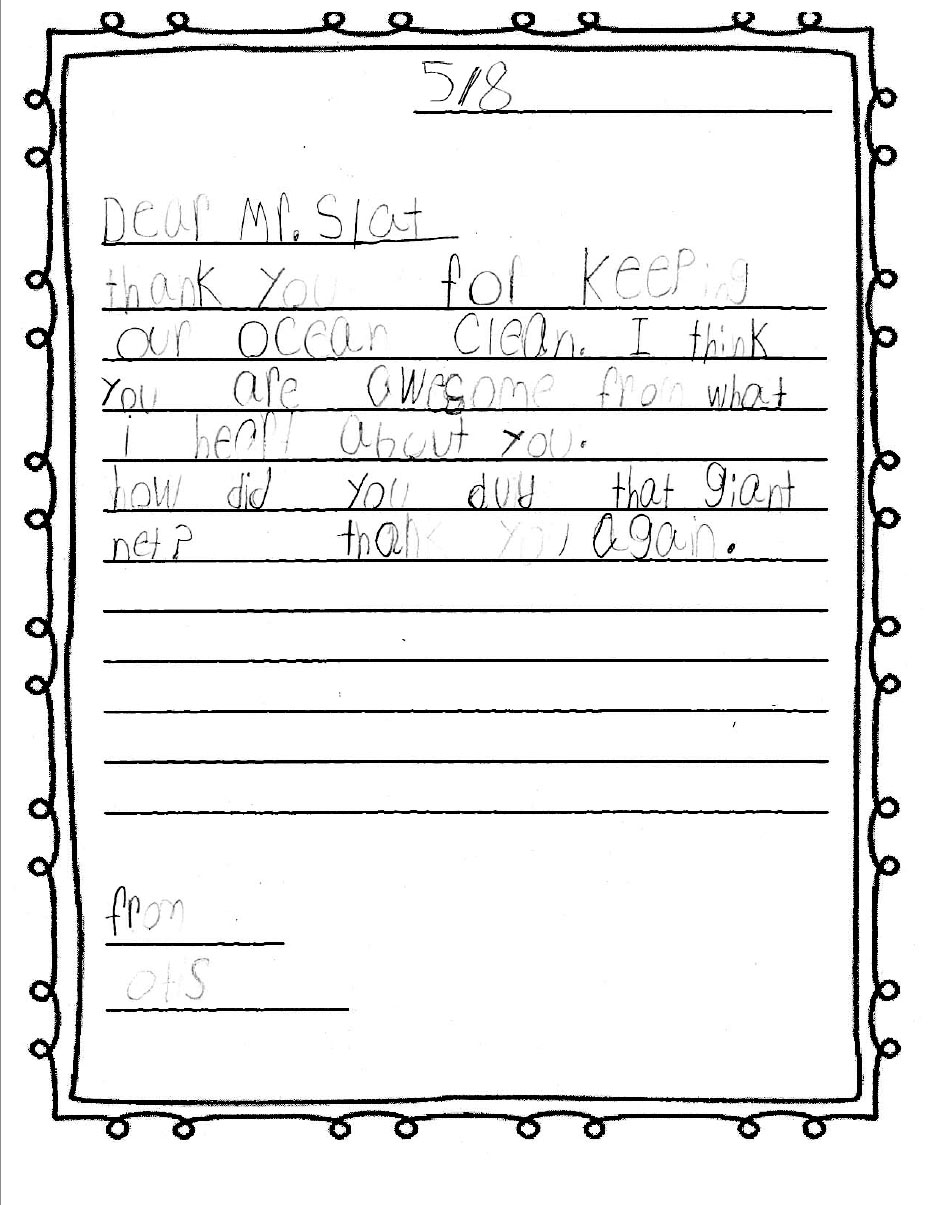 5/8
Dear Mr. Slat
thank you for keeping
our ocean clean. I think
you are awesome from what
i about you.
how did you that giant
net? thank you again.
from
otis